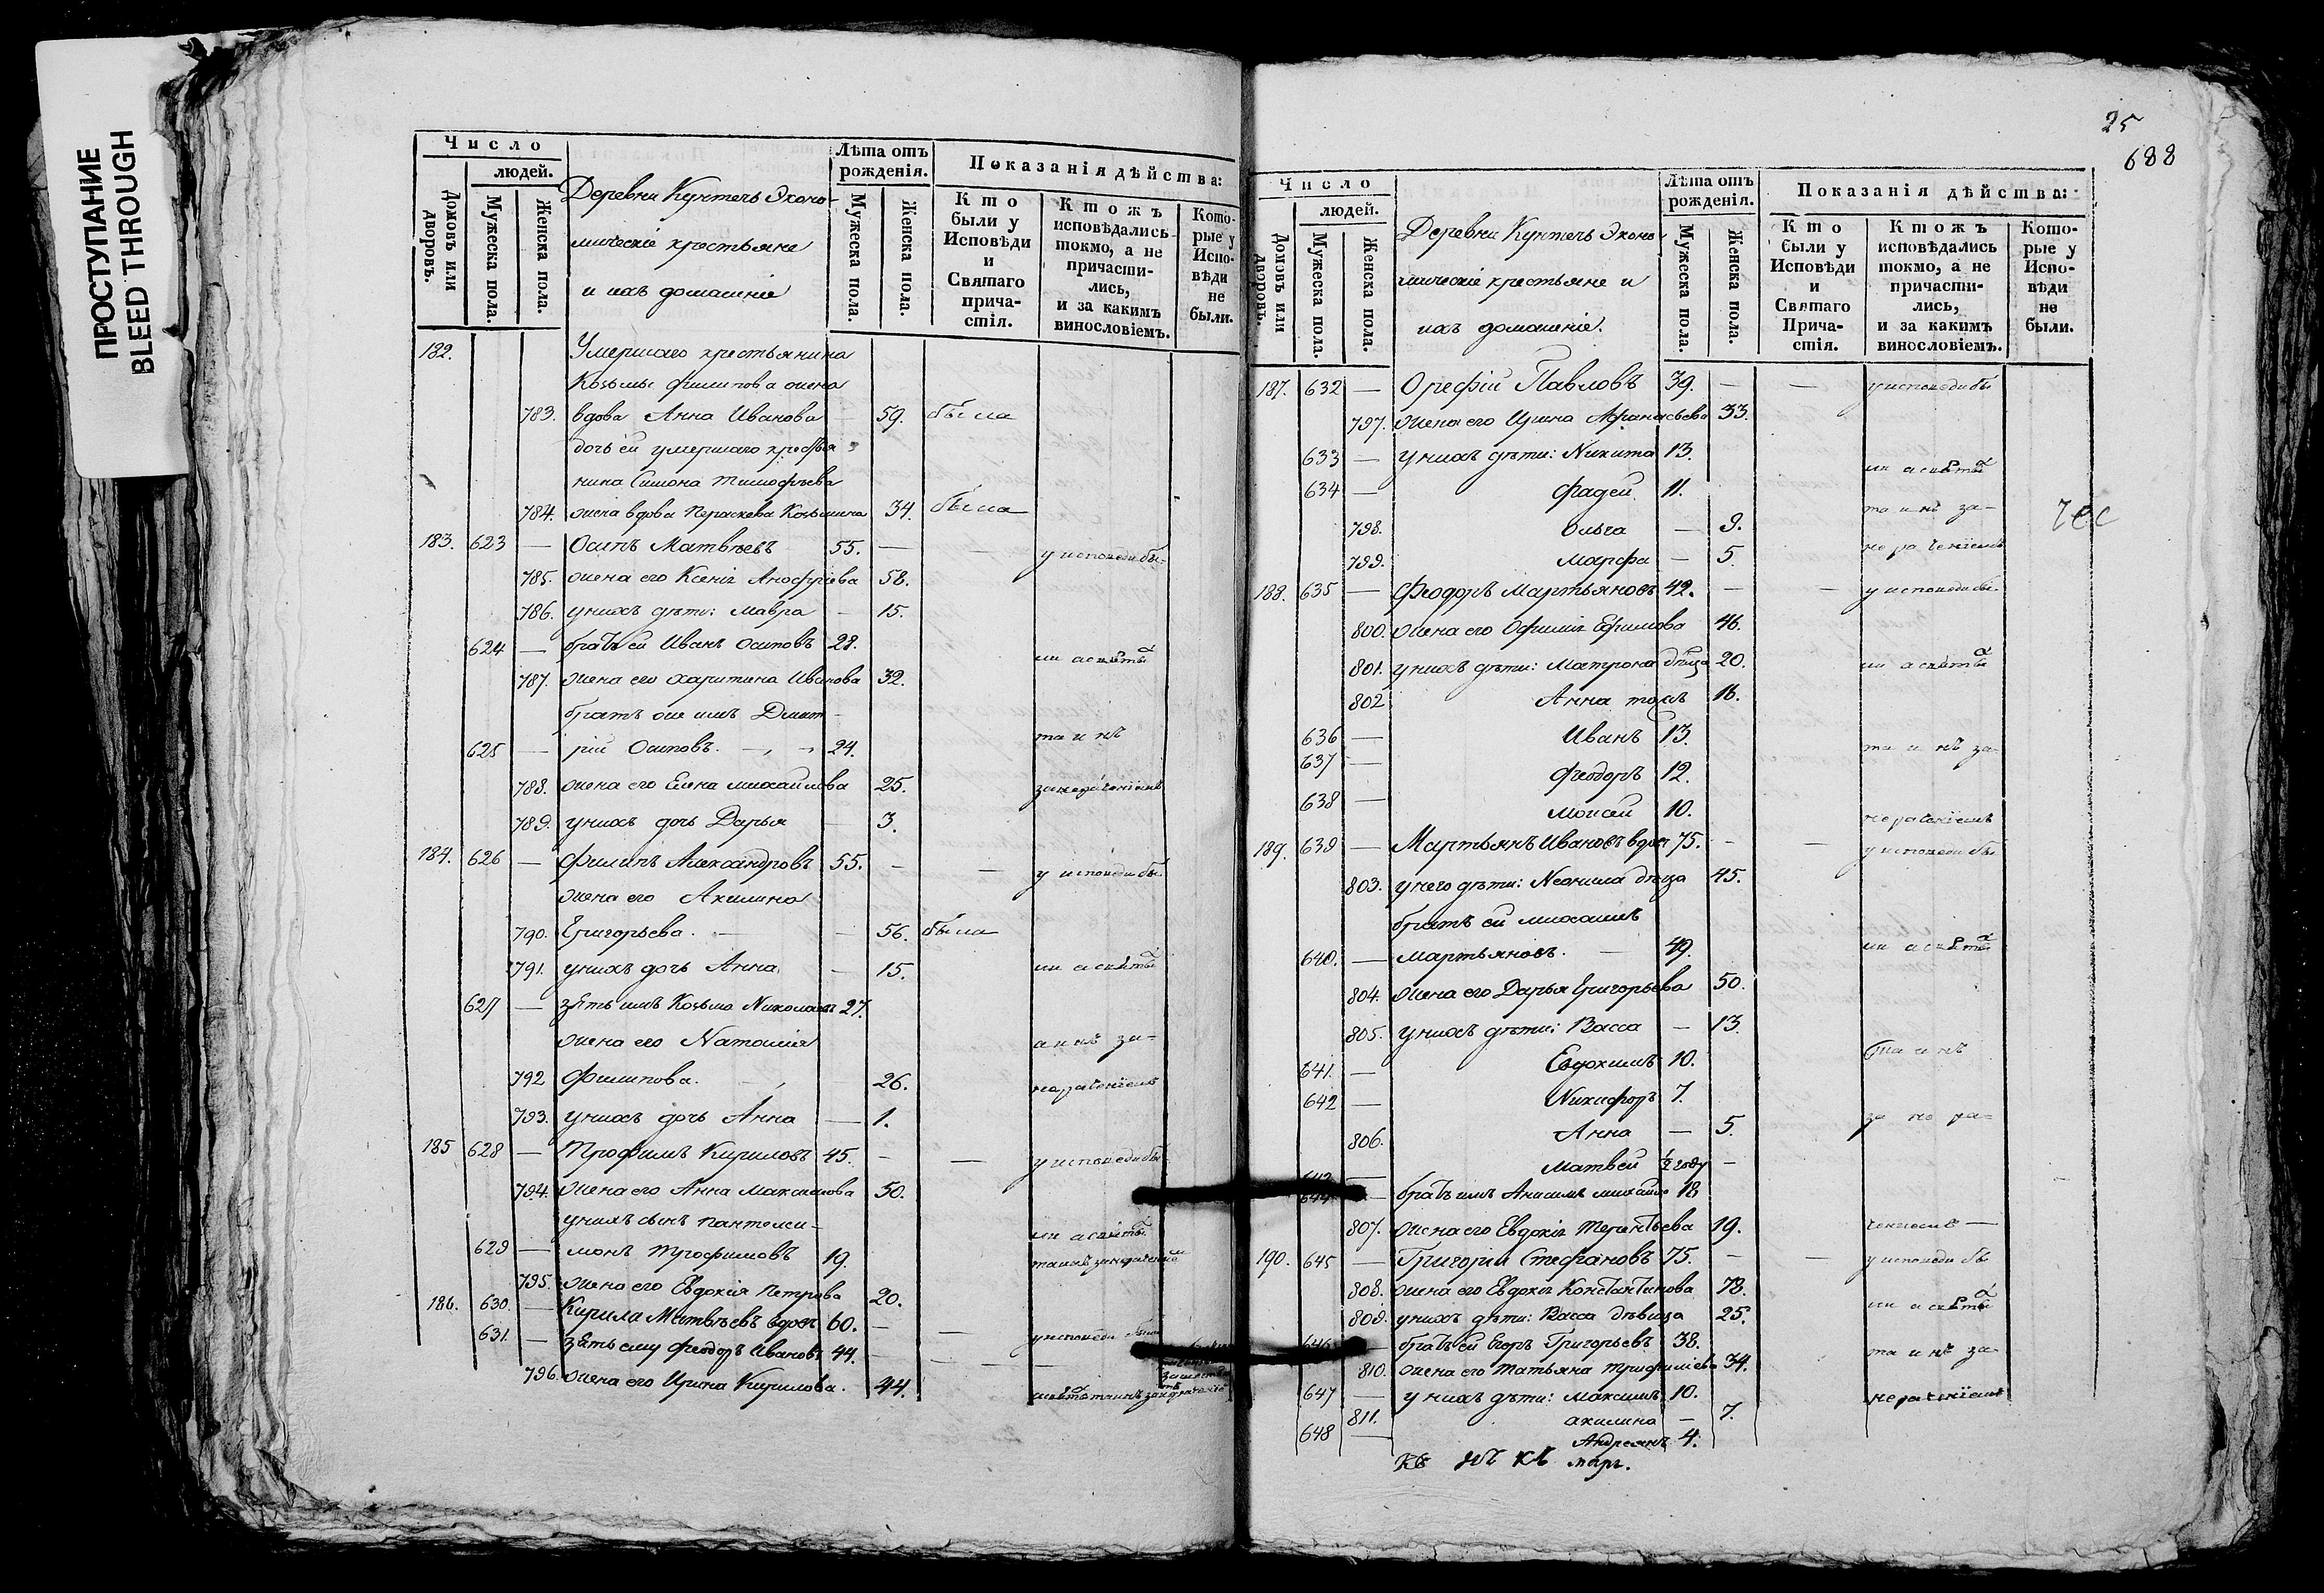 ПРОСТУПАНИЕ
BLEED THROUGH
Число
людей.
Домовъ или дворовъ.
Мужеска пола.
Женска пола.
Деревни Кунтечь Эконо-
мическіе крестьяне
и ихъ домашніе
Лѣта отъ рожденія.
Мужеска пола.
Женска пола.
Показанія дѣйства:
Кто были у Исповѣди и Святаго прича-стія.
Кто жъ исповѣдались токмо, а не причасти-лись, и за какимъ винословіемъ.
Кото-рые у Испо-вѣди не были.
182. Умершаго крестьянина
Козьмы Филипова жена
783. вдова Анна Иванова — 59. была
дочь ей умершаго крестья
нина Симона Тимофѣева
784. жена вдова Параскева Козьмина 34. была
183. 623 — Осипъ Матвѣевъ 55. — — у исповеди бы-
785. жена его Ксенія Анофріева 58.
786. у нихъ дѣти: Мавра — 15.
624 — братъ ей Иванъ Осиповъ 28.
ли а свят
787. жена его Харитина Иванова 32.
братъ же имъ Дмит-
625 — рій Осиповъ. — 24. таинъ
788. жена его Елена Михайлова 25. за нераченіемъ
789. у нихъ дочь Дарья — 3.
184. 626 — Филипъ Александровъ 55. — — у исповеди бы-
жена его Акилина
790. Григорьева. — — 56. была
791. у нихъ дочь Анна — 15. ли а свят
627 — зять имъ Козьма Николаевъ 27.
жена его Наталія
аинъ за-
792 Филипова. 26. нераченіемъ
793. у нихъ дочь Анна — 1.
185 628 — Трофимъ Кириловъ 45. — — у исповеди бы-
794. жена его Анна Максимова 50.
у нихъ сынъ Пантелеи-
ли а свят
629 — монъ Трофимовъ 19.
795. жена его Евдокія Петрова 20.
186. 630. — Кирила Матвѣевъ вдовъ 60. — — у исповеди бы
631. — зять ему Феодоръ Ивановъ 44. — — —
796. жена его Ирина Кирилова. 44.
25
688
Число
людей.
Домовъ или дворовъ.
Мужеска пола.
Женска пола.
Деревни Кунтечь Эконо-
мическіе крестьяне и
ихъ домашніе.
Лѣта отъ рожденія.
Мужеска пола.
Женска пола.
Показанія дѣйства:
Кто были у Исповѣди и Святаго Прича-стія.
Кто жъ исповѣдались токмо, а не причасти-лись, и за какимъ винословіемъ.
Кото-рые у Испо-вѣди не были.
187. 632 — Орефій Павловъ 39. — — у исповеди бы
797. жена его Ирина Афанасьева 33.
633 — у нихъ дѣти: Никита 13. ли а свят
634 — Фадей. 11.
таинъ за-
798. Ольга — 9.
799. Марфа — 5. нераченіемъ
188. 635 — Феодоръ Мартьяновъ 42. — — у исповеди бы-
800. жена его Офимія Ефимова 46.
801. у нихъ дѣти: Матрона дѣвца 20. ли а свят
802 Анна тожъ 16.
636 — Иванъ 13. таинъ за-
637 — Феодоръ 12.
638 — Моисей 10. нераченіемъ
189. 639 — Мартьянъ Ивановъ вдовъ 75. — — у исповеди бы
803. у него дѣти: Неонила дѣвца 45.
братъ ей Михаилъ
640. — Мартьяновъ. — 49. ли а свят
804. жена его Дарья Григорьева 50.
805. у нихъ дѣти: Васса — 13.
641. — Евдокимъ 10. таинъ
642 — Никифоръ 7.
806. Анна — 5. за не ра-
— Матвей ½ году —
644 — братъ имъ Анисимъ Михайло 18
807. жена его Евдокія Терентьева 19. ченіемъ —
190. 645 — Григорій Стефановъ 75. — — у исповеди бы
808. жена его Евдокія Константинова 78.
809. у нихъ дѣти: Васса дѣвица 25. ли а свят
646 — братъ ей Егоръ Григорьевъ 38.
810. жена его Татьяна Трифилiева 34. таинъ за-
647 — у нихъ дѣти: Максимъ 10. нераченіемъ
811. Акилина — 7.
648 — Андреянъ 4.